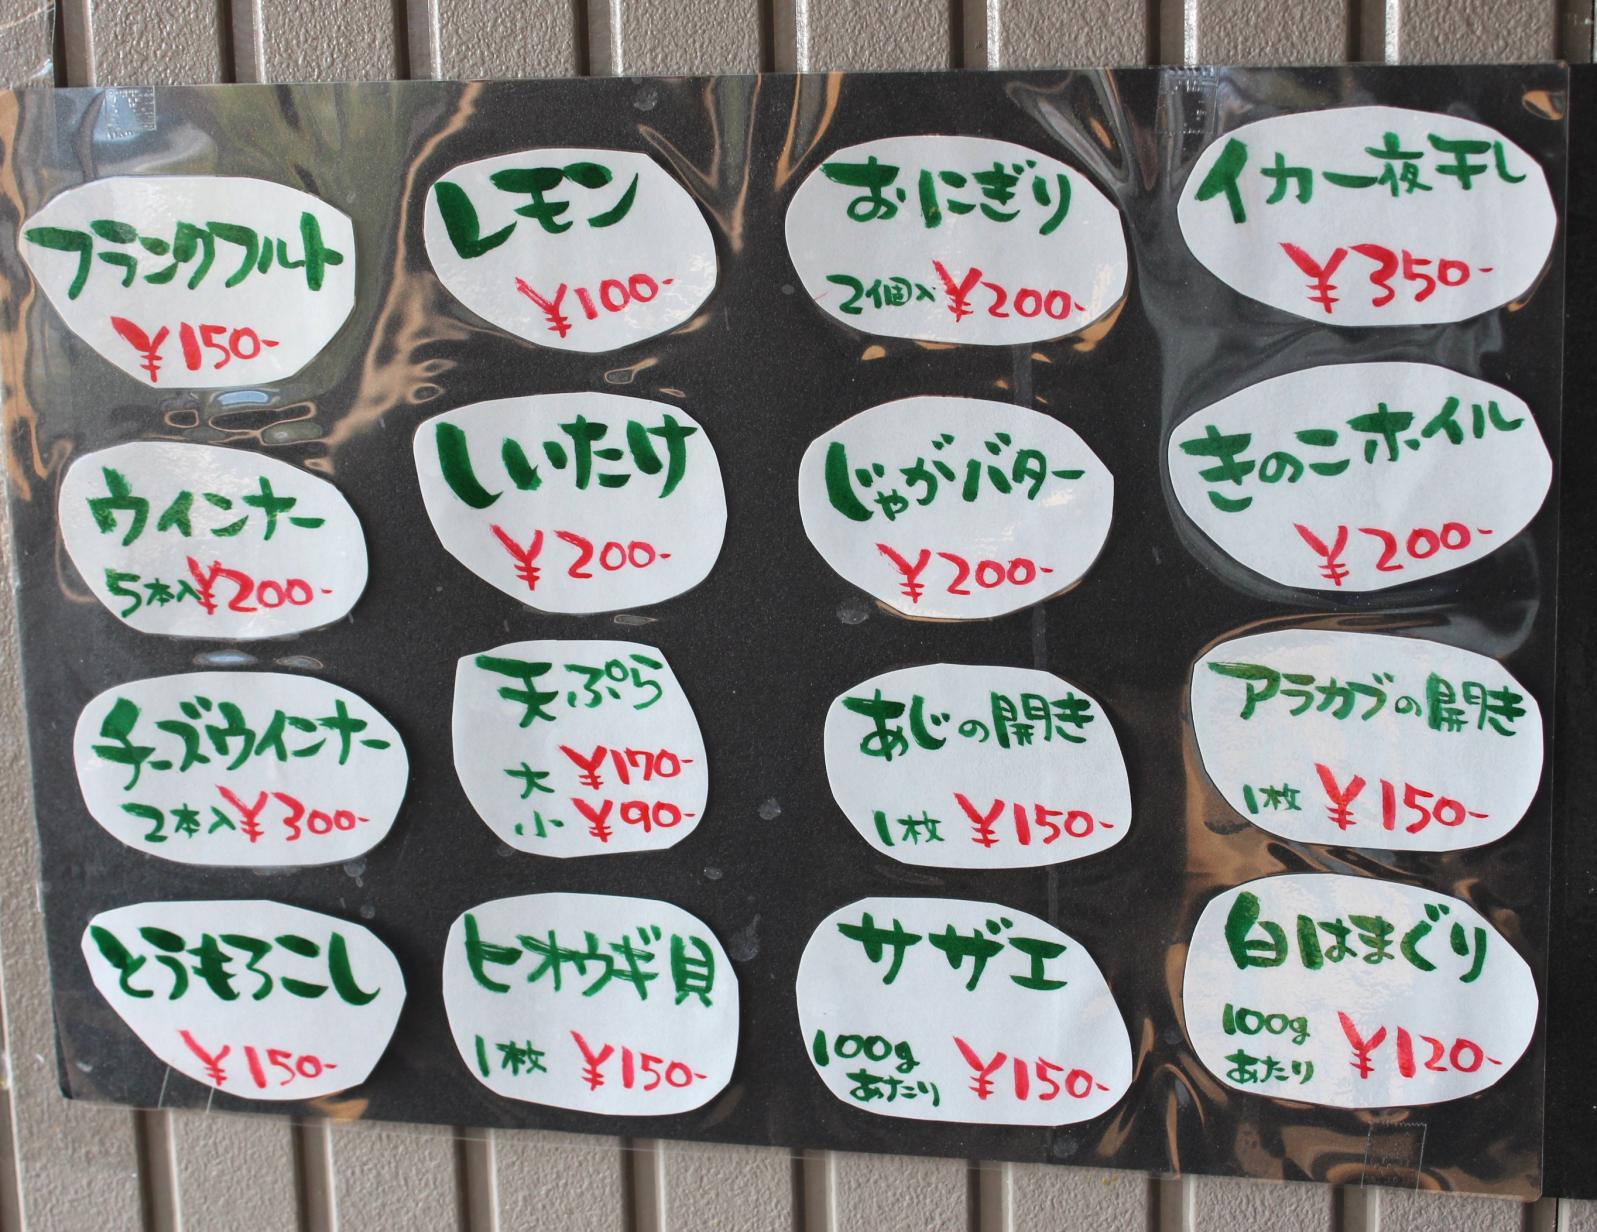 フランクフルト
¥150-
レモン
¥100-
おにぎり
2個入 ¥200-
イカ一夜干し
¥350-
ウインナー
5本入 ¥200-
しいたけ
¥200-
じゃがバター
¥200-
きのこホイル
¥200-
チーズウインナー
2本入 ¥300-
天ぷら
大 ¥170-
小 ¥90-
あじの開き
1枚 ¥150-
アラカブの開き
1枚 ¥150-
とうもろこし
¥150-
ヒオウギ貝
1枚 ¥150-
サザエ
100g
あたり ¥150-
白はまぐり
100g
あたり ¥120-